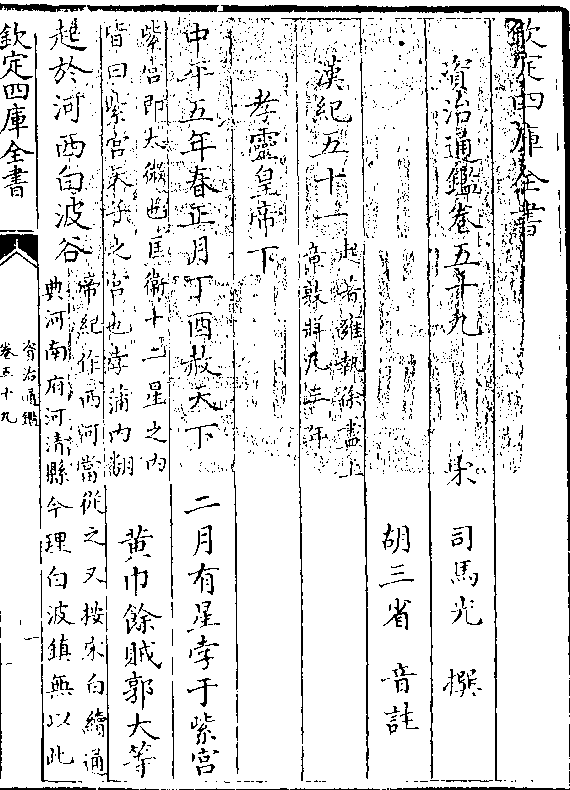 欽定四庫全書
資治通鑑卷五十九
宋 司馬光 撰
胡三省 音註
漢紀五十一 起著雍執徐盡上
章敦牂凡三年
孝靈皇帝下
中平五年春正月丁酉赦天下 二月有星孛于紫宮
紫宮即大微也匡衛十二星之內
皆曰紫宮天子之宮也孛蒲內翻 黃巾餘賊郭大等
起於河西白波谷 帝紀作西河當從之又按宋白續通
典河南府河清縣今理白波鎮無以此
欽定四庫全書
資治通鑑
卷五十九
一